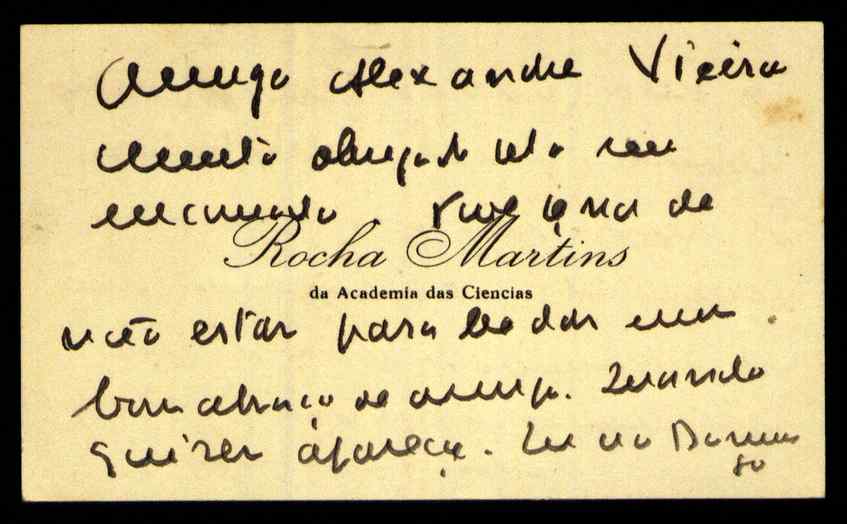 Amigo Alexandre Vieira
muito obrigado pelo seu
encomenda. Tive pena de
Rocha Martins
da Academia das Ciencias
não estar para lhe dar um
bom abraço de amigo. Quando
quizer apareça. no Domin
go